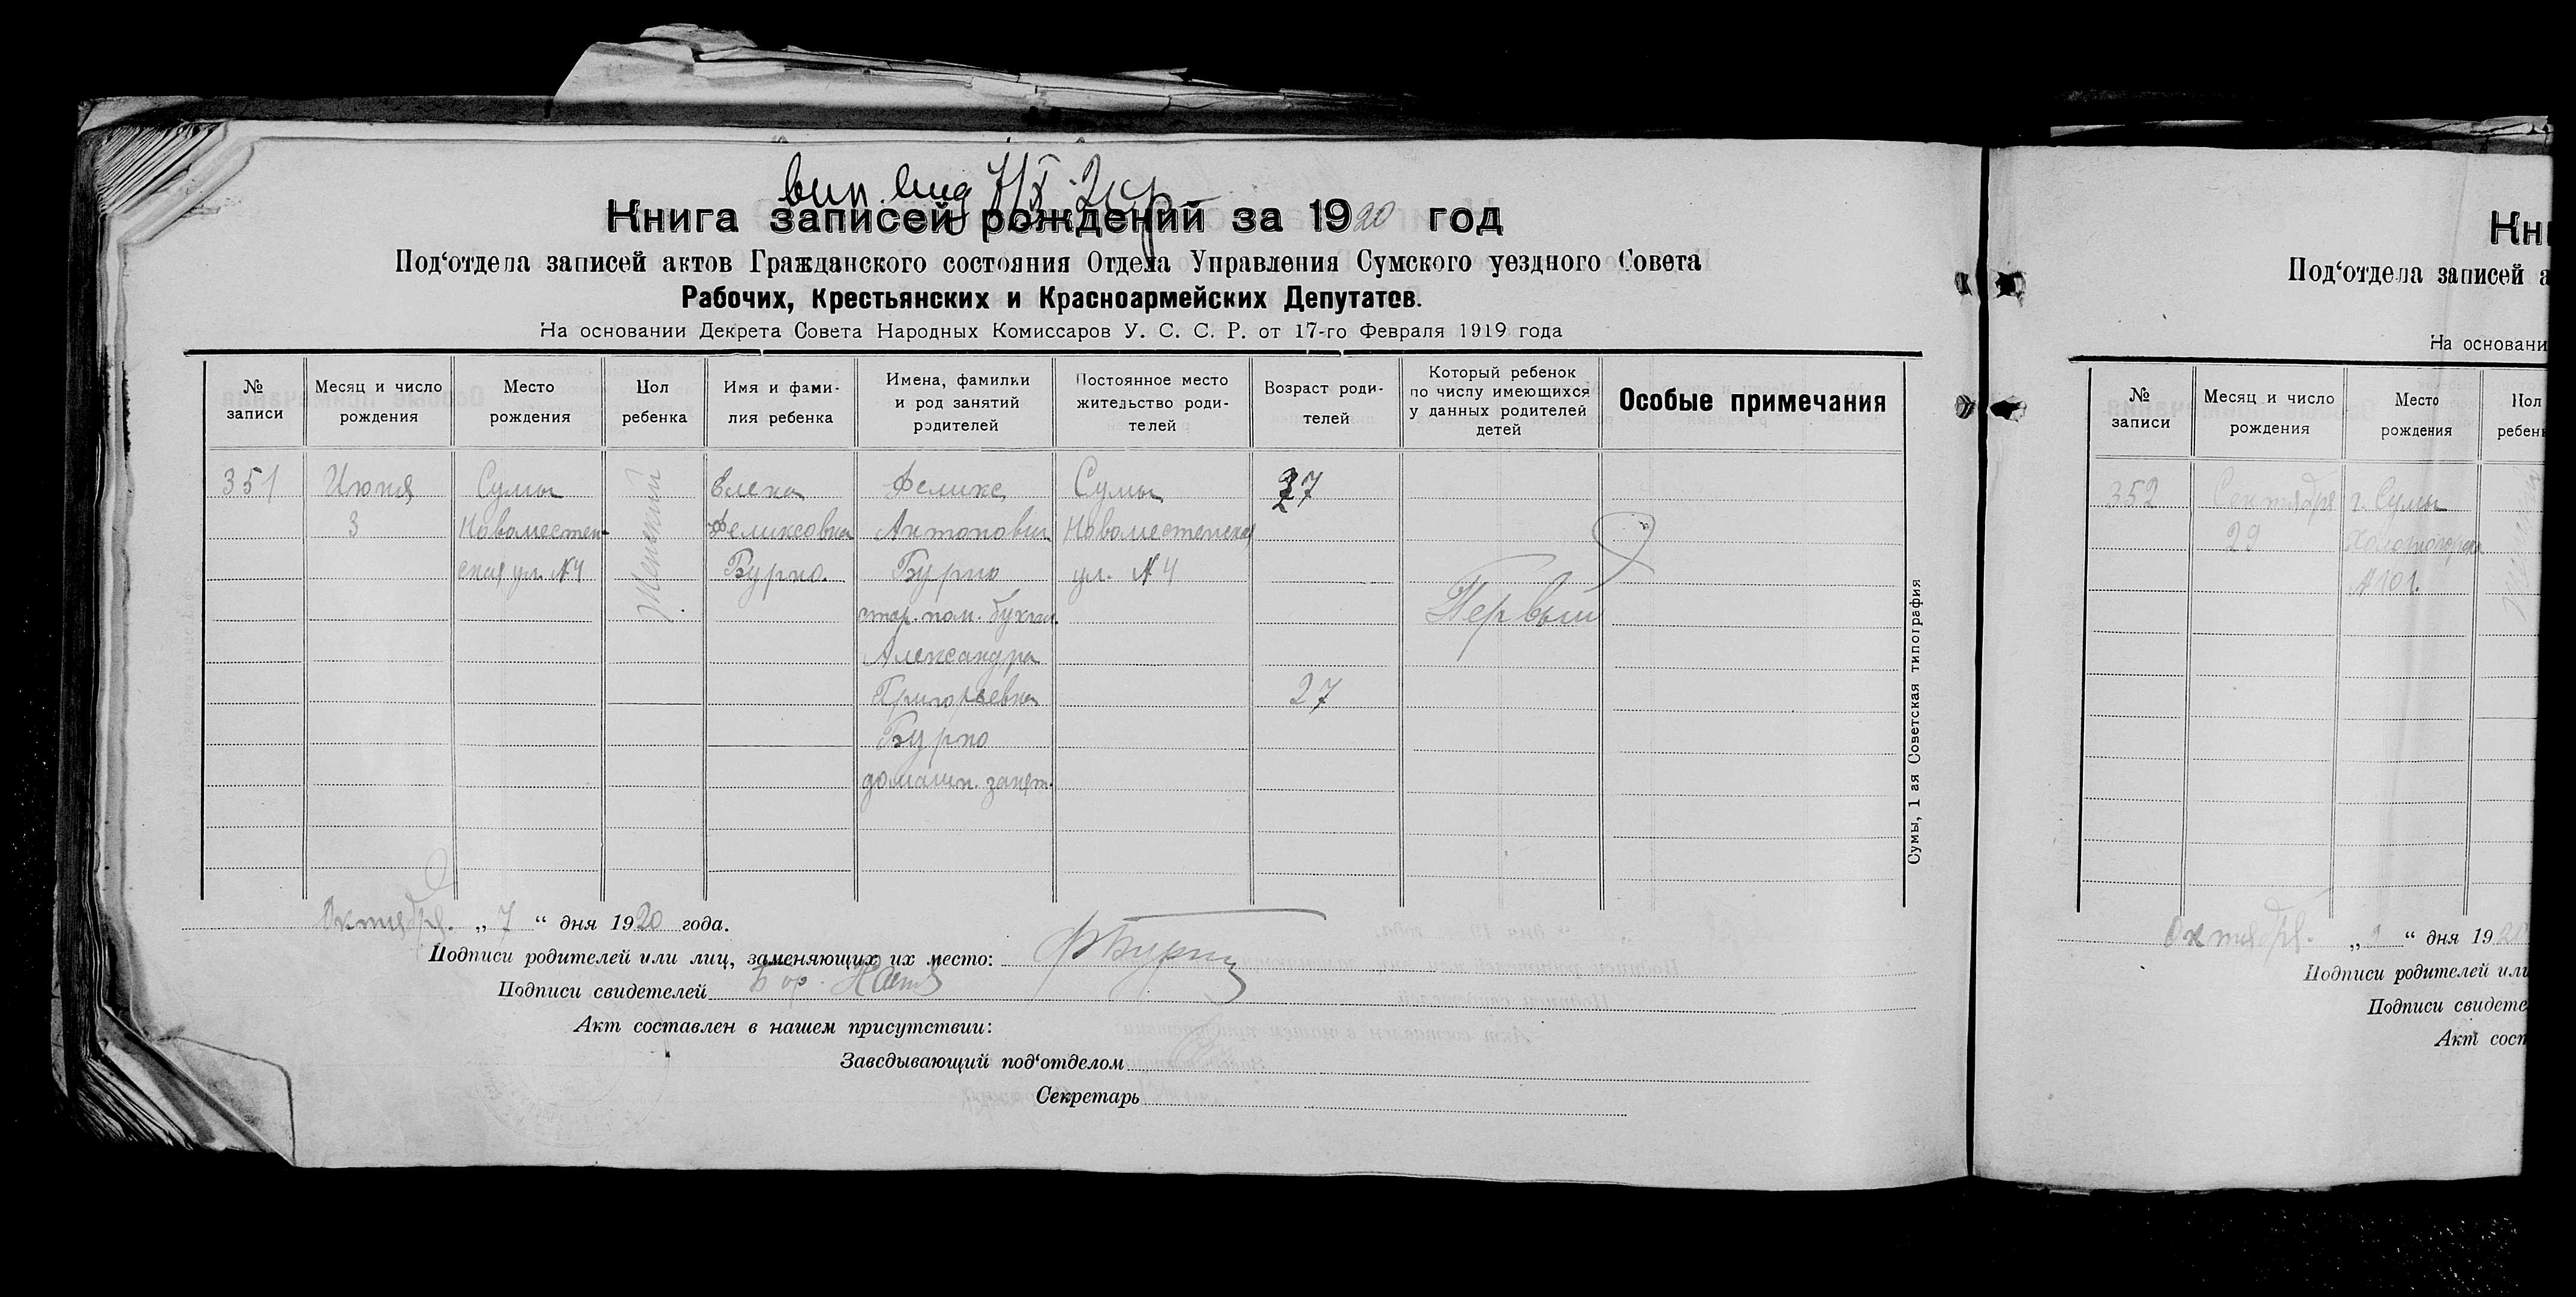 вип. вид 7/X
Книга записей рождений за 1920 год
Под‘отдела записей актов Гражданского состояния Отдела Управления Сумского уездного Совета
Рабочих, Крестьянских и Красноармейских Депутатов.
На основании Декрета Совета Народных Комиссаров У. С. С. Р. от 17-го Февраля 1919 года
№ записи
Месяц и число рождения
Место рождения
Пол ребенка
Имя и фами-
лия ребенка
Имена, фамилии
и род занятий
родителей
Постоянное место
жительство роди-
телей
Возраст роди-
телей
Который ребенок
по числу имеющихся
у данных родителей
детей
Особые примечания
351
Июня
3
Сумы
Новоместен-
ская ул. №4
Женский
Елена
Феликсовна
Бурно.
Феликс
Антонович
Бурно
стар. пом. бухгал.
Александра
Григорьевна
Бурно
домашн. занят.
Сумы
Новоместенская
ул. №4
27
27
Первый
Сумы, 1 ая Советская типография
Октября. „ 7 “ дня 1920 года.
Подписи родителей или лиц, заменяющих их место: ФБурно
Подписи свидетелей
Акт составлен в нашем присутствии:
Заведывающий под‘отделом
Секретарь
Кн
Под‘отдела записей а
На основани
№ записи
Месяц и число рождения
Место рождения
Пол
ребен
352
Сентября
29
г. Сумы
Холодногорск
№101.
Октября. „ 9 “ дня 1920
Подписи родителей или
Подписи свидете
Акт сост